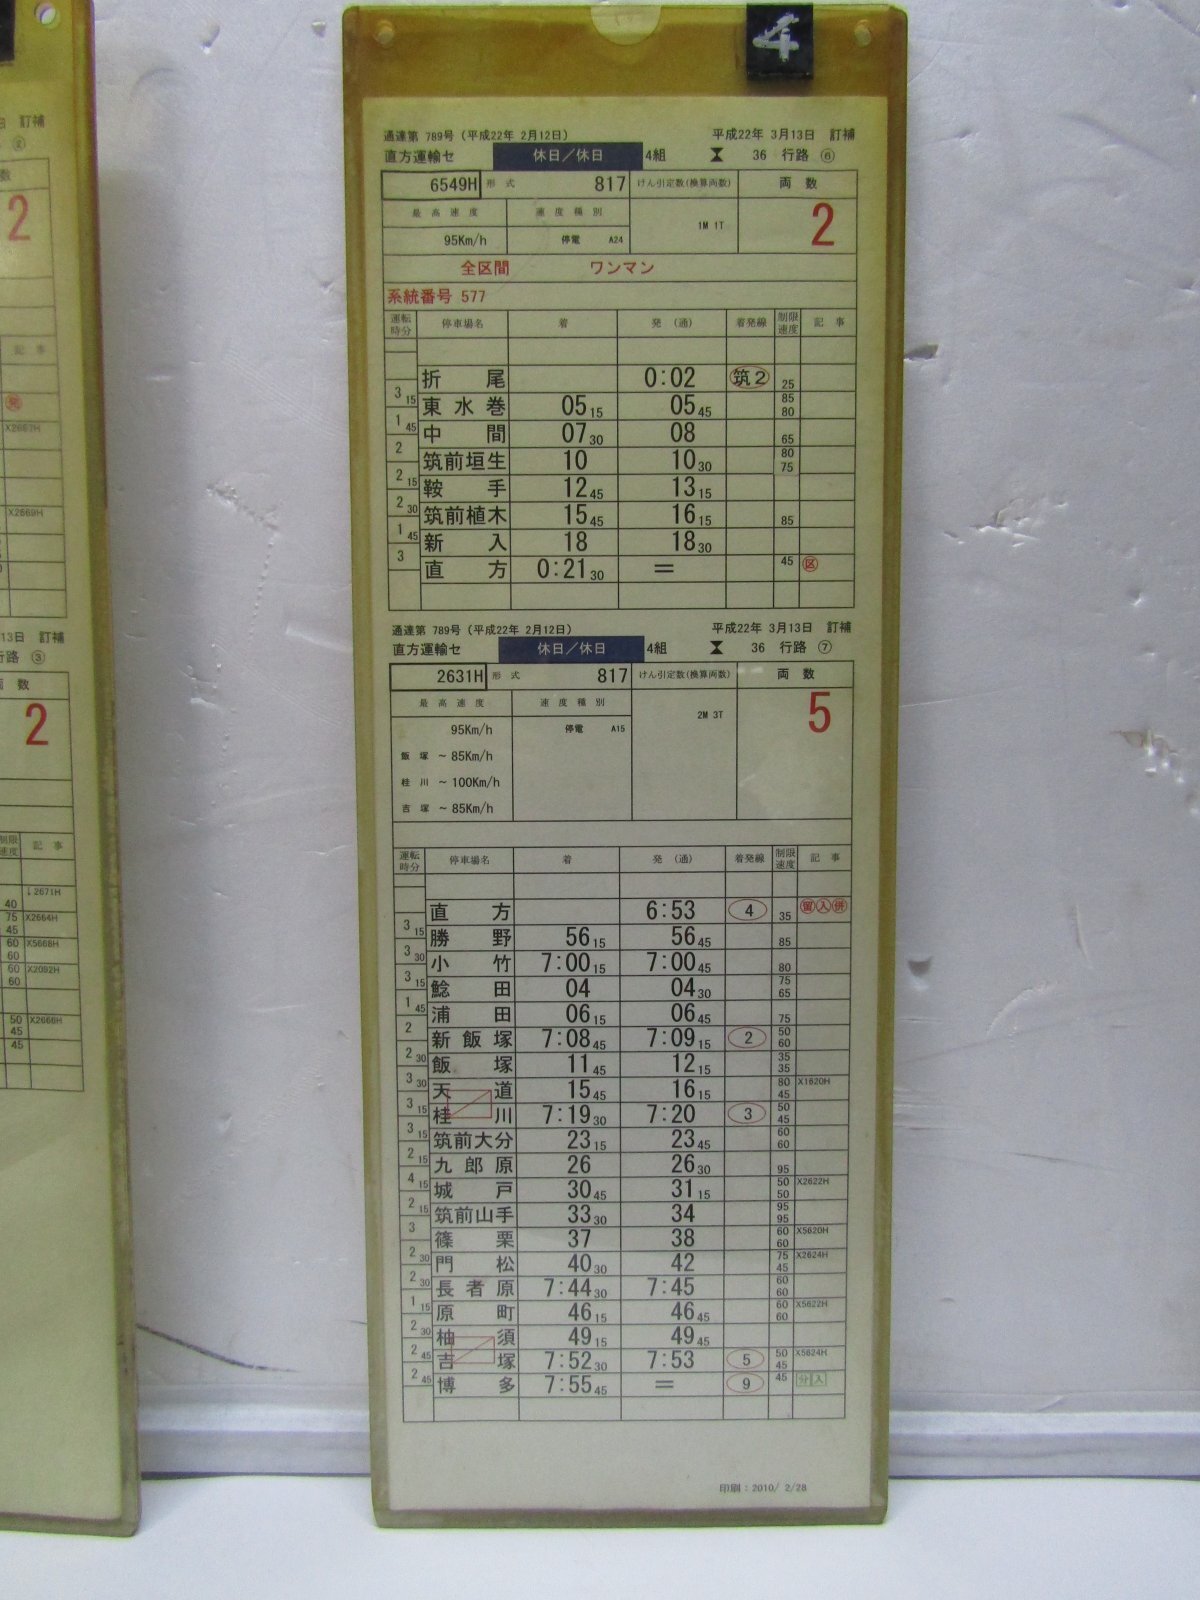 4
通達第 789号(平成22年 2月12日) 平成22年 3月13日 訂補
直方運輸セ 休日/休日 4組 36 行路 ⑥
6549H 形式 817 けん引定数(換算両数) 両数
最高速度 速度種別 1M 1T 2
95Km/h 停電 A24
全区間 ワンマン
系統番号 577
運転時分 停車場名 着 発(通) 着発線 制限速度 記事
折尾 0:02 筑2 25
3 15
東水巻 05 15 05 45 85 80
1 45
中間 07 30 08 65
2
筑前垣生 10 10 30 80 75
2 15
鞍手 12 45 13 15
2 30
筑前植木 15 45 16 15 85
1 45
新入 18 18 30
3
直方 0:21 30 = 45 区
通達第 789号(平成22年 2月12日) 平成22年 3月13日 訂補
直方運輸セ 休日/休日 4組 36 行路 ⑦
2631H 形式 817 けん引定数(換算両数) 両数
最高速度 速度種別 2M 3T 5
95Km/h 停電 A15
飯塚 ~ 85Km/h
桂川 ~ 100Km/h
吉塚 ~ 85Km/h
運転時分 停車場名 着 発(通) 着発線 制限速度 記事
直方 6:53 4 35 留入併
3 15
勝野 56 15 56 45 85
3 30
小竹 7:00 15 7:00 45 80
3 15
鯰田 04 04 30 75 65
1 45
浦田 06 15 06 45 75
2
新飯塚 7:08 45 7:09 15 2 50 60
2 30
飯塚 11 45 12 15 35 35
3 30
天道 15 45 16 15 80 45 X1620H
3 15
桂川 7:19 30 7:20 3 50 45
3 15
筑前大分 23 15 23 45 60 60
2 15
九郎原 26 26 30 95
4 15
城戸 30 45 31 15 50 50 X2622H
2 15
筑前山手 33 30 34 95 95
3
篠栗 37 38 60 60 X5620H
2 30
門松 40 30 42 75 45 X2624H
2 30
長者原 7:44 30 7:45 60 60
1 15
原町 46 15 46 45 60 60 X5622H
2 30
柚須 49 15 49 45
2 45
吉塚 7:52 30 7:53 5 50 45 X5624H
2 45
博多 7:55 45 = 9 45 分入
印刷:2010/ 2/28
訂補
数
2
記事
発
X2667H
X2669H
13日 訂補
行路 ③
両数
2
制限速度 記事
↓2671H
40
75 X2664H
45
60 X5668H
60
60 X2092H
60
50 X2666H
45
45